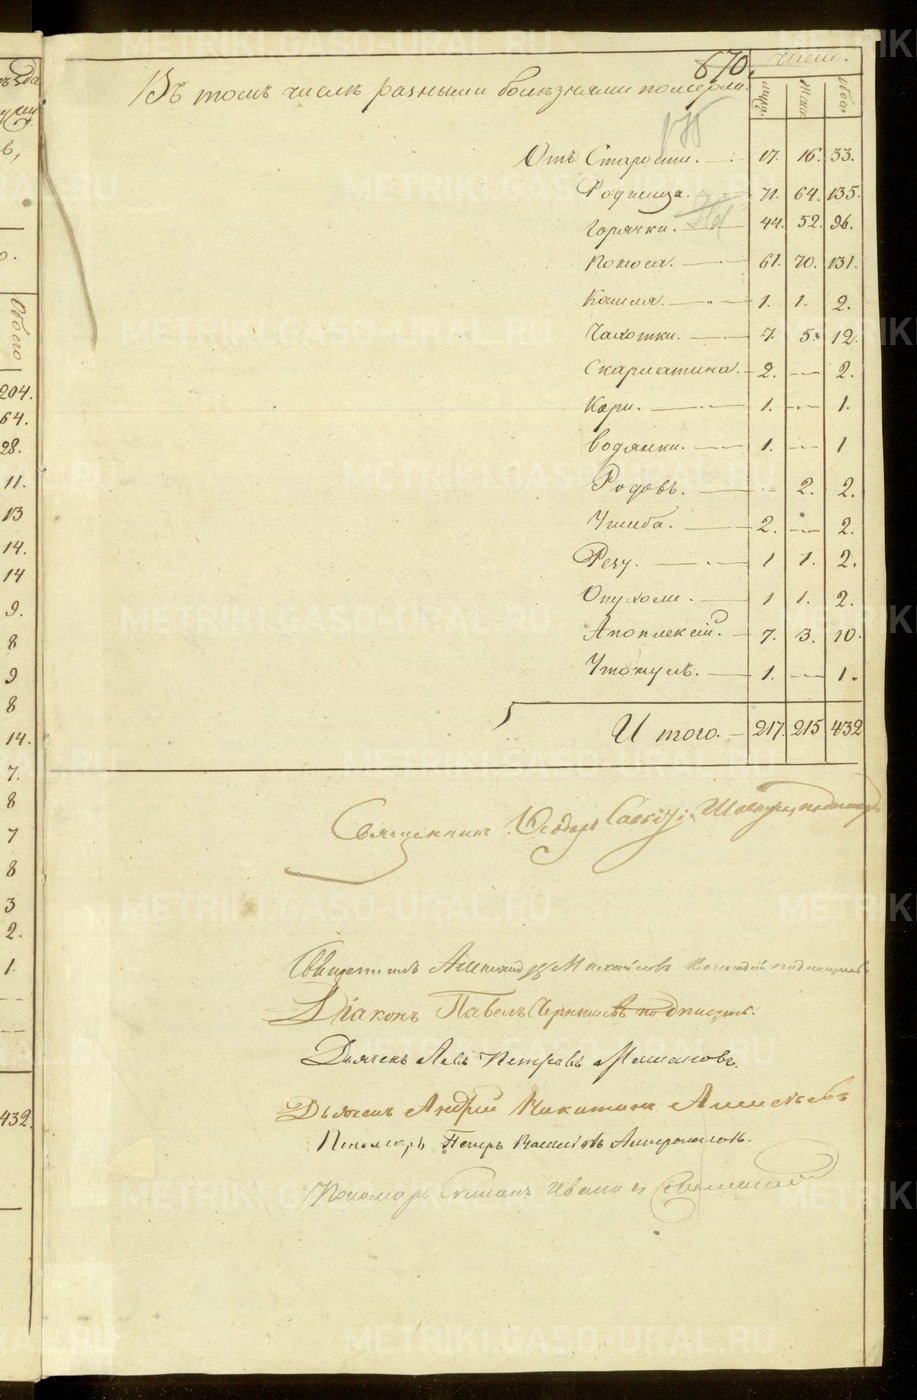 ѣзда
въ,
о.
Обоего
204.
64.
28.
11.
13
14.
14
9.
8
9
8
14.
7.
8
7
8
3
2.
1.
432.
670.
Въ томъ числѣ разными болѣзнями померли.
число.
муж. жен. обое.
Отъ Старости. 17. 16. 33.
Родимца. 71. 64. 135.
Горячки. 44. 52. 96.
Поноса. 61. 70. 131.
Кашля. 1. 1. 2.
Чахотки. 7. 5. 12.
Скарлатина. 2. — 2.
Кори. 1. — 1.
Водянки. 1. — 1
Родовъ. — 2. 2.
Ушиба. 2. — 2.
Резу. 1 1. 2.
Опухоли. 1 1. 2.
Апоплексіи. 7. 3. 10.
Утонулъ. 1. — 1.
Итого. 217. 215 432
Священникъ Ѳедоръ
Священникъ Александръ Михайловъ подписался
Діаконъ Павелъ подписался.
Дьячекъ Левъ Петровъ
Дьячекъ Андрей Никитинъ
Пономарь Петръ
Пономарь Степанъ Ивановъ
METRIKI.GASO-URAL.RU